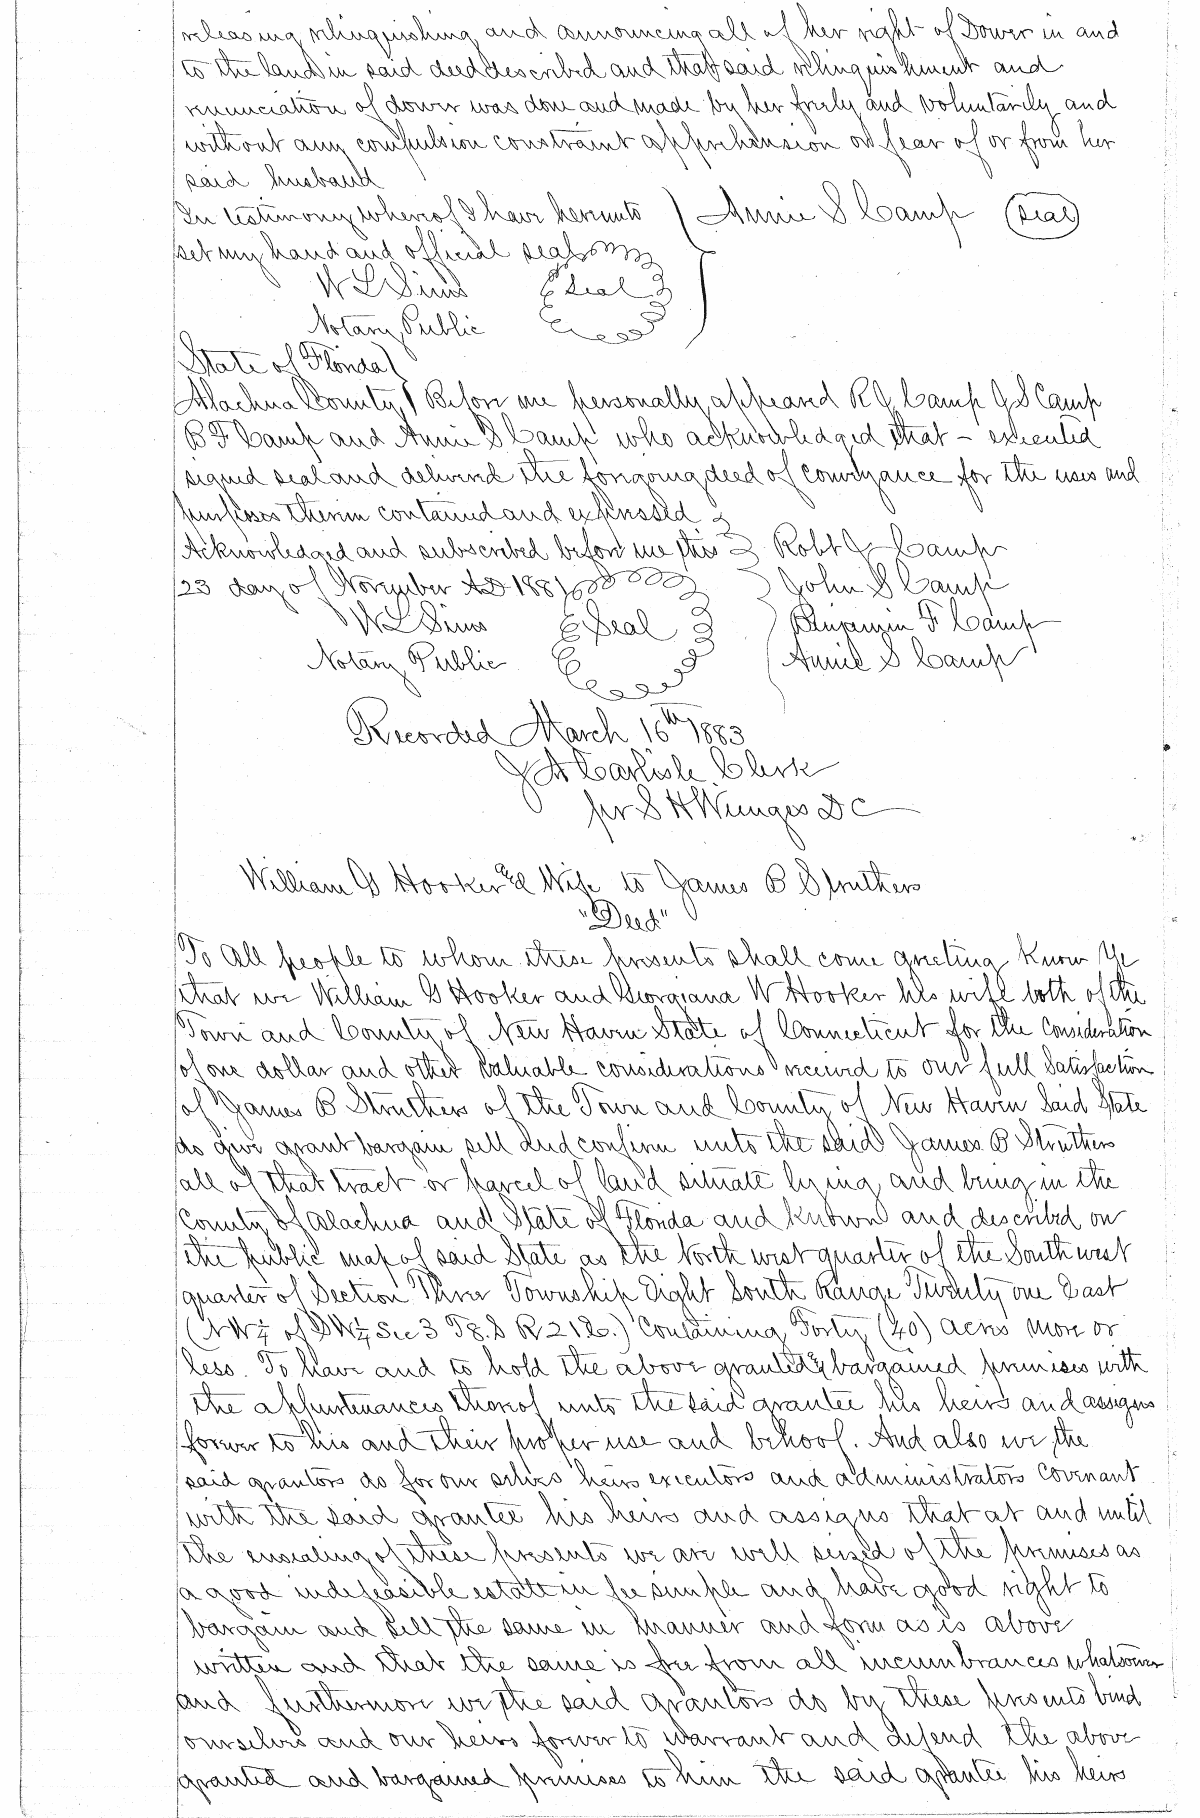 releasing relinquishing and announcing all of her right of Dower in and
to the lands in said deed described and that said relinquishment and
renunciation of dower was done and made by her freely and voluntarily and
without any compulsion constraint apprehension or fear of or from her
said husband
In testimony whereof I have hereunto ) Annie S Camp (Seal)
set my hand and official seal
W L Sims Seal
Notary Public
State of Florida )
Alachua County ) Before me personally appeared R J Camp J S Camp
B F Camp and Annie S Camp who acknowledged that – executed
signed seal and delivered the foregoing deed of conveyance for the uses and
purposes therein contained and expressed
Acknowledged and subscribed before me this Robt J Camp
23 day of November AD 188 John S Camp
W L Sims Seal Benjamin F Camp
Notary Public Annie S Camp
Recorded March 16th 1883
J A Carlisle Clerk
pr S H Wienges DC
William G Hooker and Wife to James B Struthers
"Deed"
To All people to whom these presents shall come greeting Know Ye
that we William G Hooker and Georgiana W Hooker his wife both of the
Town and County of New Haven State of Connecticut for the consideration
of one dollar and other valuable considerations received to our full Satisfaction
of James B Struthers of the Town and County of New Haven Said State
do give grant bargain sell and confirm unto the said James B Struthers
all of that tract or parcel of land situate lying and being in the
County of Alachua and State of Florida and known and described on
the public map of said State as the North west quarter of the South west
quarter of Section Three Township Eight South Range Twenty one East
(NW¼ of SW¼ Sec 3 T8.S R21E.) Containing Forty (40) acres more or
less. To have and to hold the above granted & bargained premises with
the appurtenances thereof unto the said grantee his heirs and assigns
forever to his and their proper use and behoof. And also we the
said grantors do for our selves heirs executors and administrators covenant
with the said grantee his heirs and assigns that at and until
the ensealing of these presents we are well seized of the premises as
a good indefeasible estate in fee simple and have good right to
bargain and sell the same in manner and form as is above
written and that the same is free from all incumbrances whatsoever
and furthermore we the said grantors do by these presents bind
ourselves and our heirs forever to warrant and defend the above
granted and bargained premises to him the said grantee his heirs